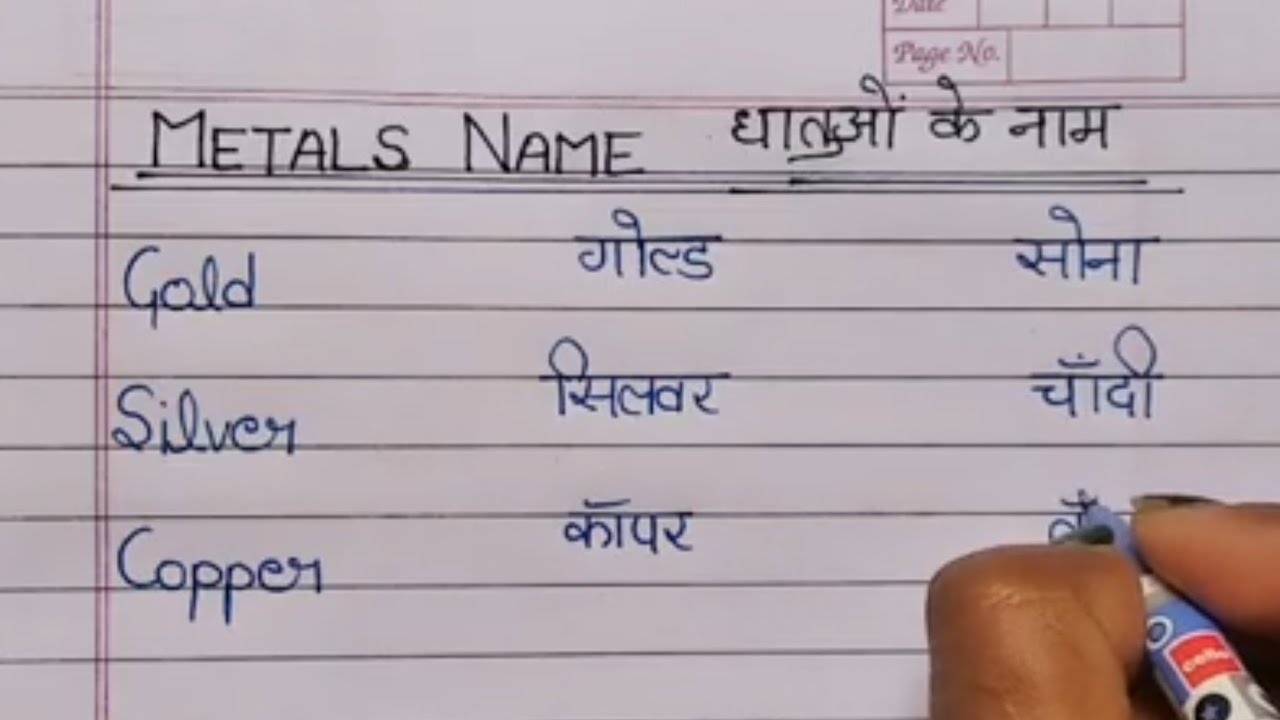 Date
Page No.
METALS NAME धातुओं के नाम
Gold गोल्ड सोना
Silver सिलवर चाँदी
Copper कॉपर